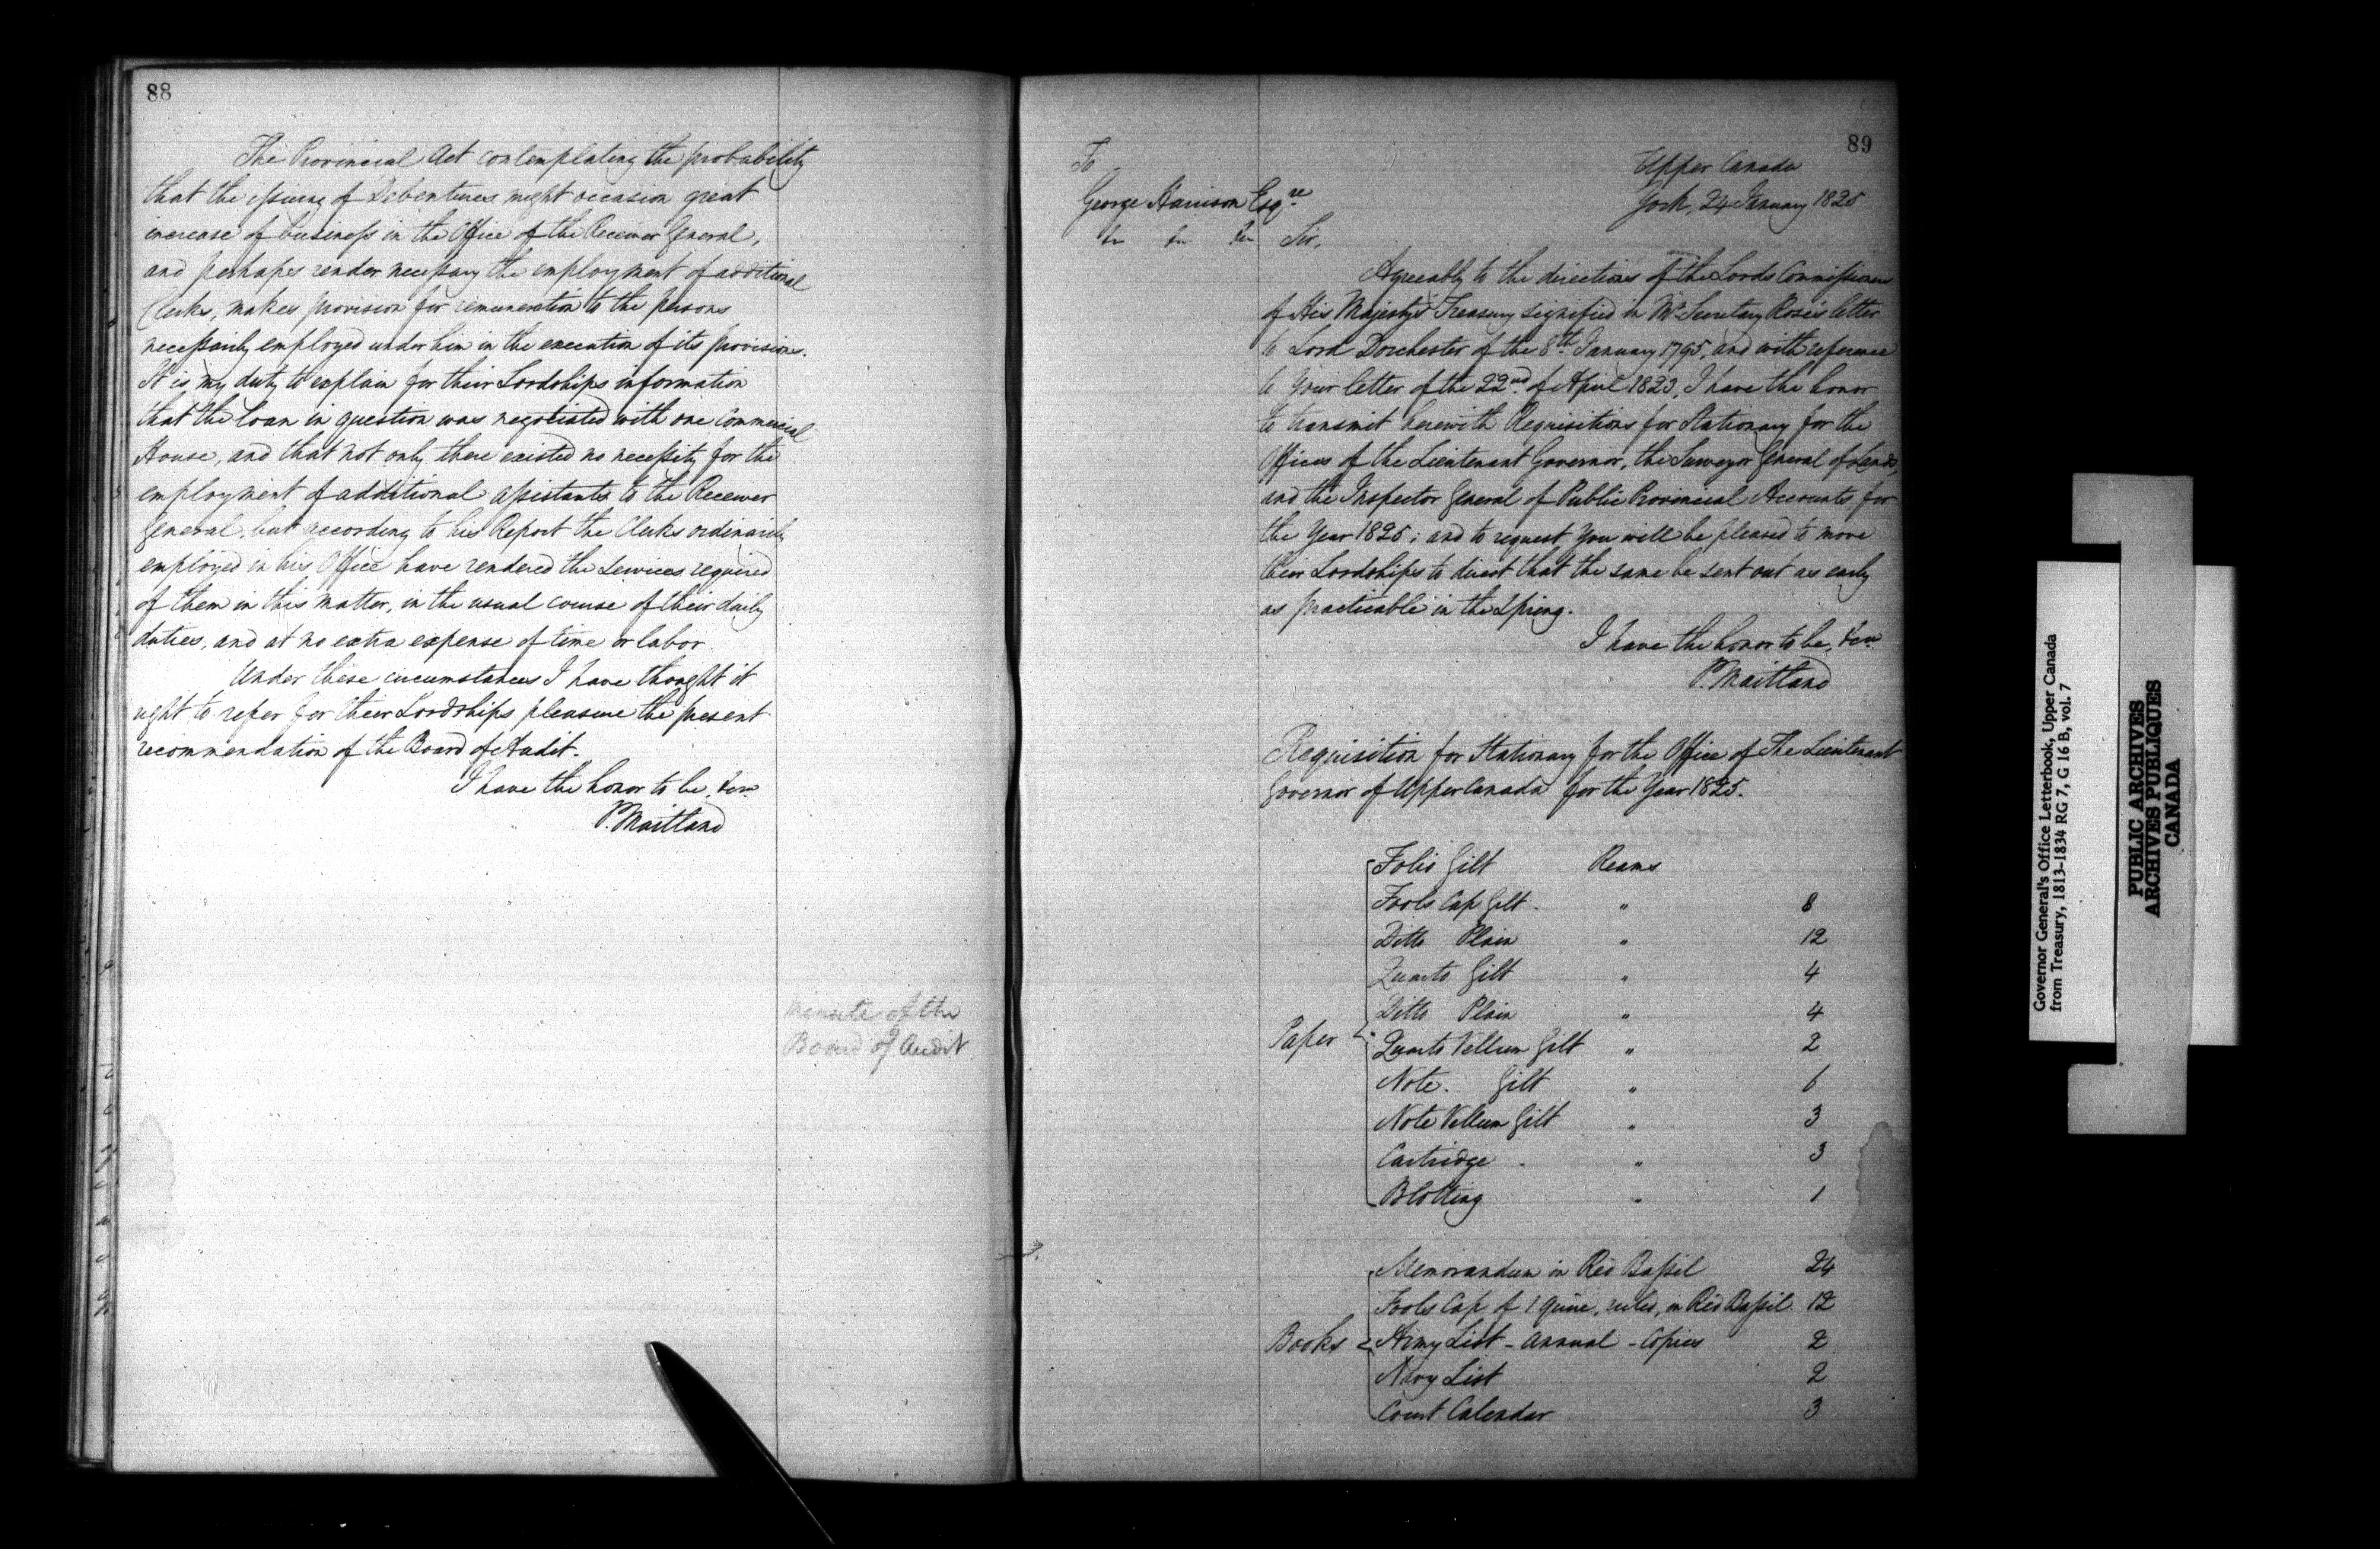 88
The Provincial Act contemplating the probability
that the issuing of Debentures might occasion great
increase of business in the Office of the Receiver General,
and perhaps render necessary the employment of additional
Clerks, makes provision for remuneration to the persons
necessarily employed under him in the execution of its provisions.
It is my duty to explain for their Lordships information
that the loan in question was negotiated with one Commercial
House, and that not only there existed no necessity for the
employment of additional assistants to the Receiver
General, but according to his Report the Clerks ordinarily
employed in his Office have rendered the services required
of them in this matter, in the usual course of their daily
duties, and at no extra expense of time or labor.
Under these circumstances I have thought it
right to refer for their Lordships pleasure the present
recommendation of the Board of Audit.
I have the honor to be, &ca
P. Maitland
Minute of the
Board of Audit
89
Upper Canada
York, 24 January 1825
To
George Harrison Esqre
&c &c &c
Sir,
Agreeably to the directions of the Lords Commissioners
of His Majesty's Treasury signified in Mr Secretary Rose's letter
to Lord Dorchester of the 8th January 1795, and with reference
to Your letter of the 22nd of April 1823, I have the honor
to transmit herewith Requisitions for Stationary for the
Offices of the Lieutenant Governor, the Surveyor General of Lands,
and the Inspector General of Public Provincial Accounts, for
the Year 1825; and to request you will be pleased to move
their Lordships to direct that the same be sent out as early
as practicable in the Spring.
I have the honor to be, &ca
P. Maitland
Requisition for Stationary for the Office of The Lieutenant
Governor of Upper Canada for the Year 1825.
Folio Gilt Reams
Fools Cap Gilt. " 8
Ditto Plain " 12
Quarto Gilt " 4
Ditto Plain " 4
Paper Quarto Vellum Gilt " 2
Note. Gilt " 6
Note Vellum Gilt " 3
Cartridge " 3
Blotting " 1
Memorandum in Red Bassil 24
Fools Cap of 1 quire, ruled, in Red Bassil 12
Books Army List - annual - Copies 2
Navy List 2
Court Calendar 3
Governor General's Office Letterbook, Upper Canada
from Treasury, 1813-1834 RG 7, G 16 B, vol. 7
PUBLIC ARCHIVES
ARCHIVES PUBLIQUES
CANADA